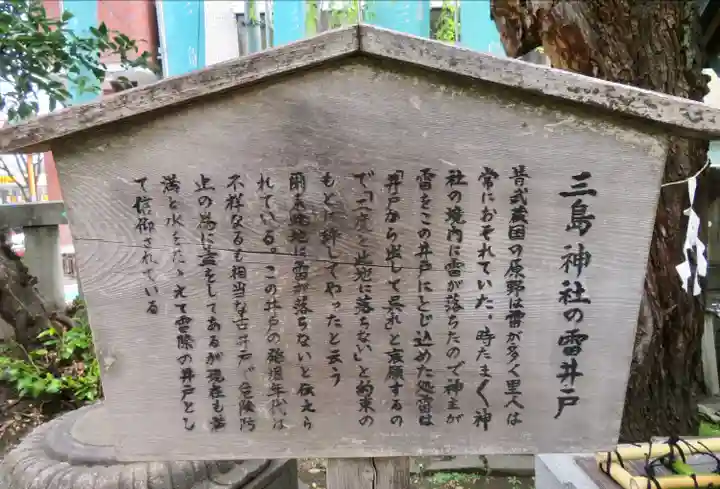 三島神社の雷井戸
昔武蔵国の原野は雷が多く里人は
常におそれていた。時たまく神
社の境内に雷が落ちたので神主が
雷をこの井戸にとじ込めた処雷は
「井戸から出して呉れ」と哀願するの
で「二度と此地に落ちない」と約束の
もとに許してやったと云う
爾来此地は雷が落ちないと伝えら
れている。この井戸の発掘年代は
不祥なるも相当な古井戸で危険防
止の為に蓋をしてあるが現在も満
満と水をたゝえて雷除の井戸とし
て信仰されている